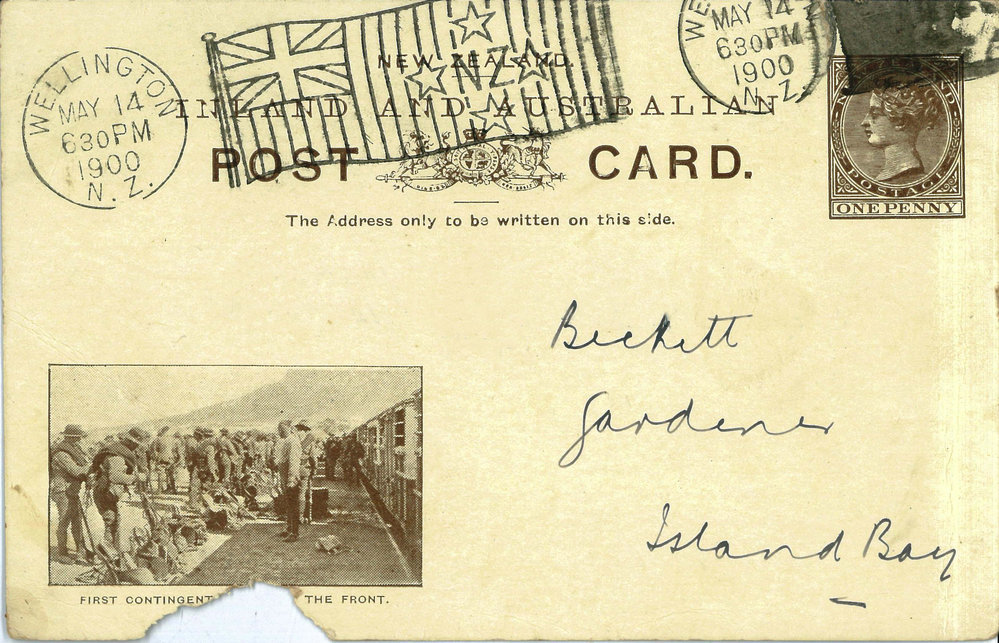 WELLINGTON
MAY 14
630PM
1900
N. Z.
NZ
WE
MAY 14
630PM
1900
N. Z.
NEW ZEALAND.
INLAND AND AUSTRALIAN
POST CARD.
POSTAGE
ONE PENNY
The Address only to be written on this side.
Beckett
Gardener
Island Bay
FIRST CONTINGENT THE FRONT.